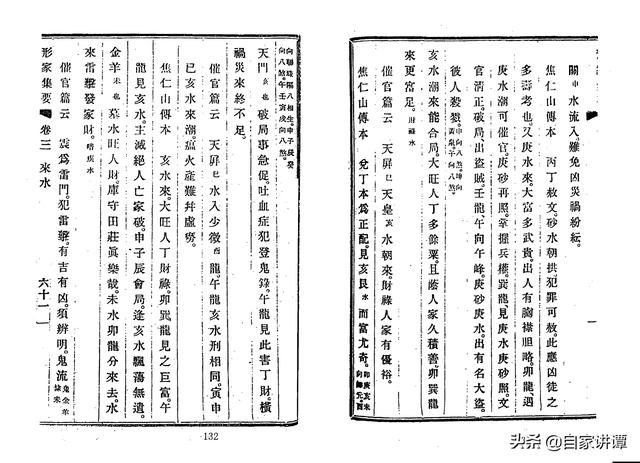 關申水流入。難免凶災禍紛紜。
焦仁山傳本 丙丁赦文。砂水朝拱。犯罪可赦。此應凶徒之
多壽考也。又庚水來大富多武貴。出人有胸襟胆略卯龍遇
庚水潮可催官。庚砂再照。掌握兵權。巽龍見庚水庚砂照。文
官清正。破局出盜賊。壬龍午向午峰。庚砂庚水。出有名大盜。
彼人殺戮。
亥水潮來能合局。大旺人丁多餘粟。且蔭人家久積善。卯巽龍
來更富足。財祿水
催官篇云 天屏巳天皇亥水朝來。財祿人家有優裕。
焦仁山傳本 兌丁本爲正配。見亥艮水而富尤奇。
天門亥也破局事急促。吐血症犯登鬼錄。午龍見此害丁財。橫
禍災來終不足。
催官篇云 天屏巳水入少微酉龍。午龍亥水刑相同。寅申
巳亥水來潮。瘟火產難幷虛癆。
焦仁山傳本 亥水來。大旺人丁財祿卯巽龍見之巨富。午
龍見亥水。主滅絕人亡家破。申子辰會局。逢亥水飄蕩無遺。
金羊未也墓水旺人財庫守田莊眞樂哉。未水卯龍分來去。水
來雷擊發家財。
催官篇云 震爲雷門。犯雷擊。有吉有凶。須辨明。鬼流
形家集要 卷三 來水 六十一
132
头条 @自家讲谭